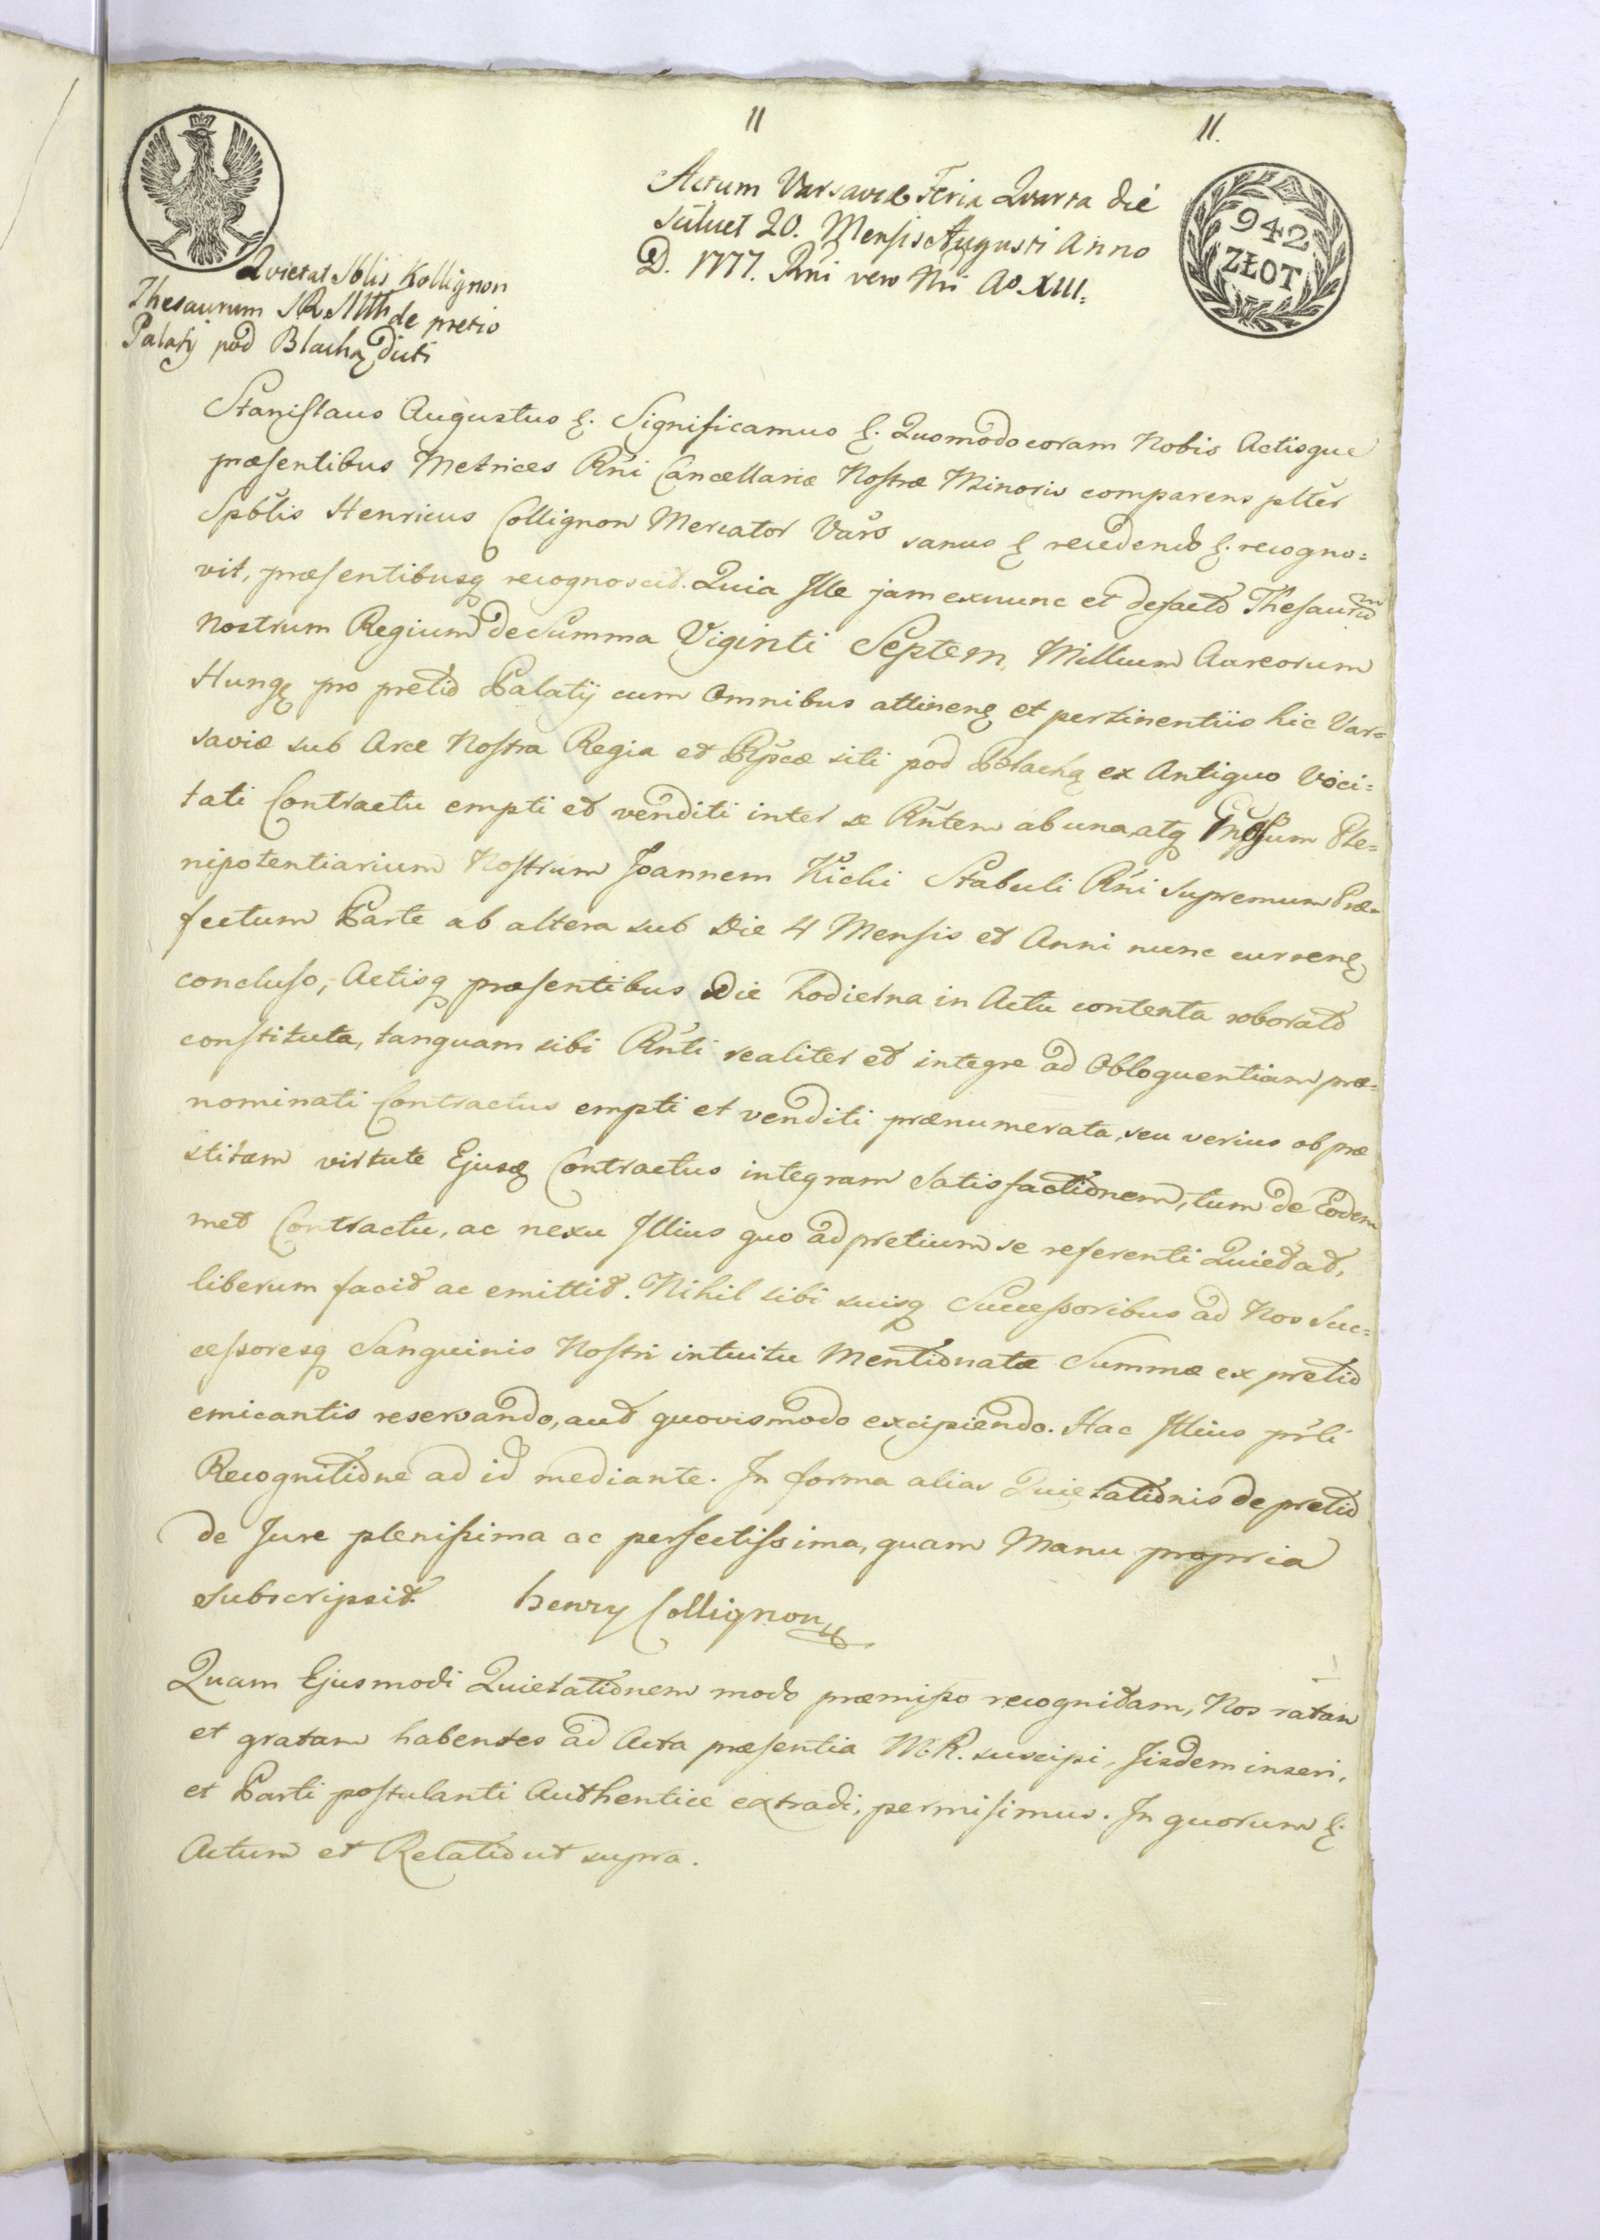 11
11.
Actum Varsaviæ Feria Quarta die
scilicet 20. Mensis Augusti Anno
D. 1777. Rńi vero Nri Ao XIII.
942
ZŁOT
Quietat Sblis Kollignon
Thesaurum de pretio
Palatij pod Blachą dicti
Stanislaus Augustus &. Significamus &. Quomodo coram Nobis Actisque
præsentibus Metrices Rńi Cancellariæ Nostræ Minoris comparens plter
Spblis Henricus Collignon Mercator Vars sanus & recedendo &. recogno=
vit, præsentibusq recognoscit. Quia Ille jam exnunc et defacto Thesaurum
Nostrum Regium de Summa Viginti Septem Millium Aureorum
Hung pro pretio Palatij cum Omnibus attinen et pertinentiis hic Var=
saviæ sub Arce Nostra Regia et Rpcæ siti pod Blachą ex Antiquo Voci=
tati Contractu empti et venditi inter se Rńtem ab una, atq Gńosum Ple=
nipotentiarium Nostrum Joannem Kicki Stabuli Rńi Supremum Præ=
fectum Parte ab altera sub Die 4 Mensis et Anni nunc curren
concluso, Actisq præsentibus Die hodierna in Actu contenta roborato
constituta, tanquam sibi Rńti realiter et integre ad Obloquentiam præ=
nominati Contractus empti et venditi prænumerata, seu verius ob præ
stitam virtute Ejusd Contractus integram Satisfactionem, tum de Eodem
met Contractu, ac nexu Illius quo ad pretium se referenti Quietat,
liberum facit ac emittit. Nihil sibi suisq Successoribus ad Nos Suc=
cessoresq Sanguinis Nostri intuitu Mentionatæ Summæ ex pretio
emicantis reservando, aut quovismodo excipiendo. Hac Illius pńli
Recognitione ad id mediante. In forma alias Quietationis de pretio
de Jure plenissima ac perfectissima, quam Manu propria
subscripsit. henry Collignon
Quam Ejusmodi Quietationem modo præmisso recognitam, Nos ratam
et gratam habentes ad Acta præsentia M.R. suscipi, Iisdem inseri,
et Parti postulanti Authentice extradi, permisimus. In quorum &.
Actum et Relatio ut supra.